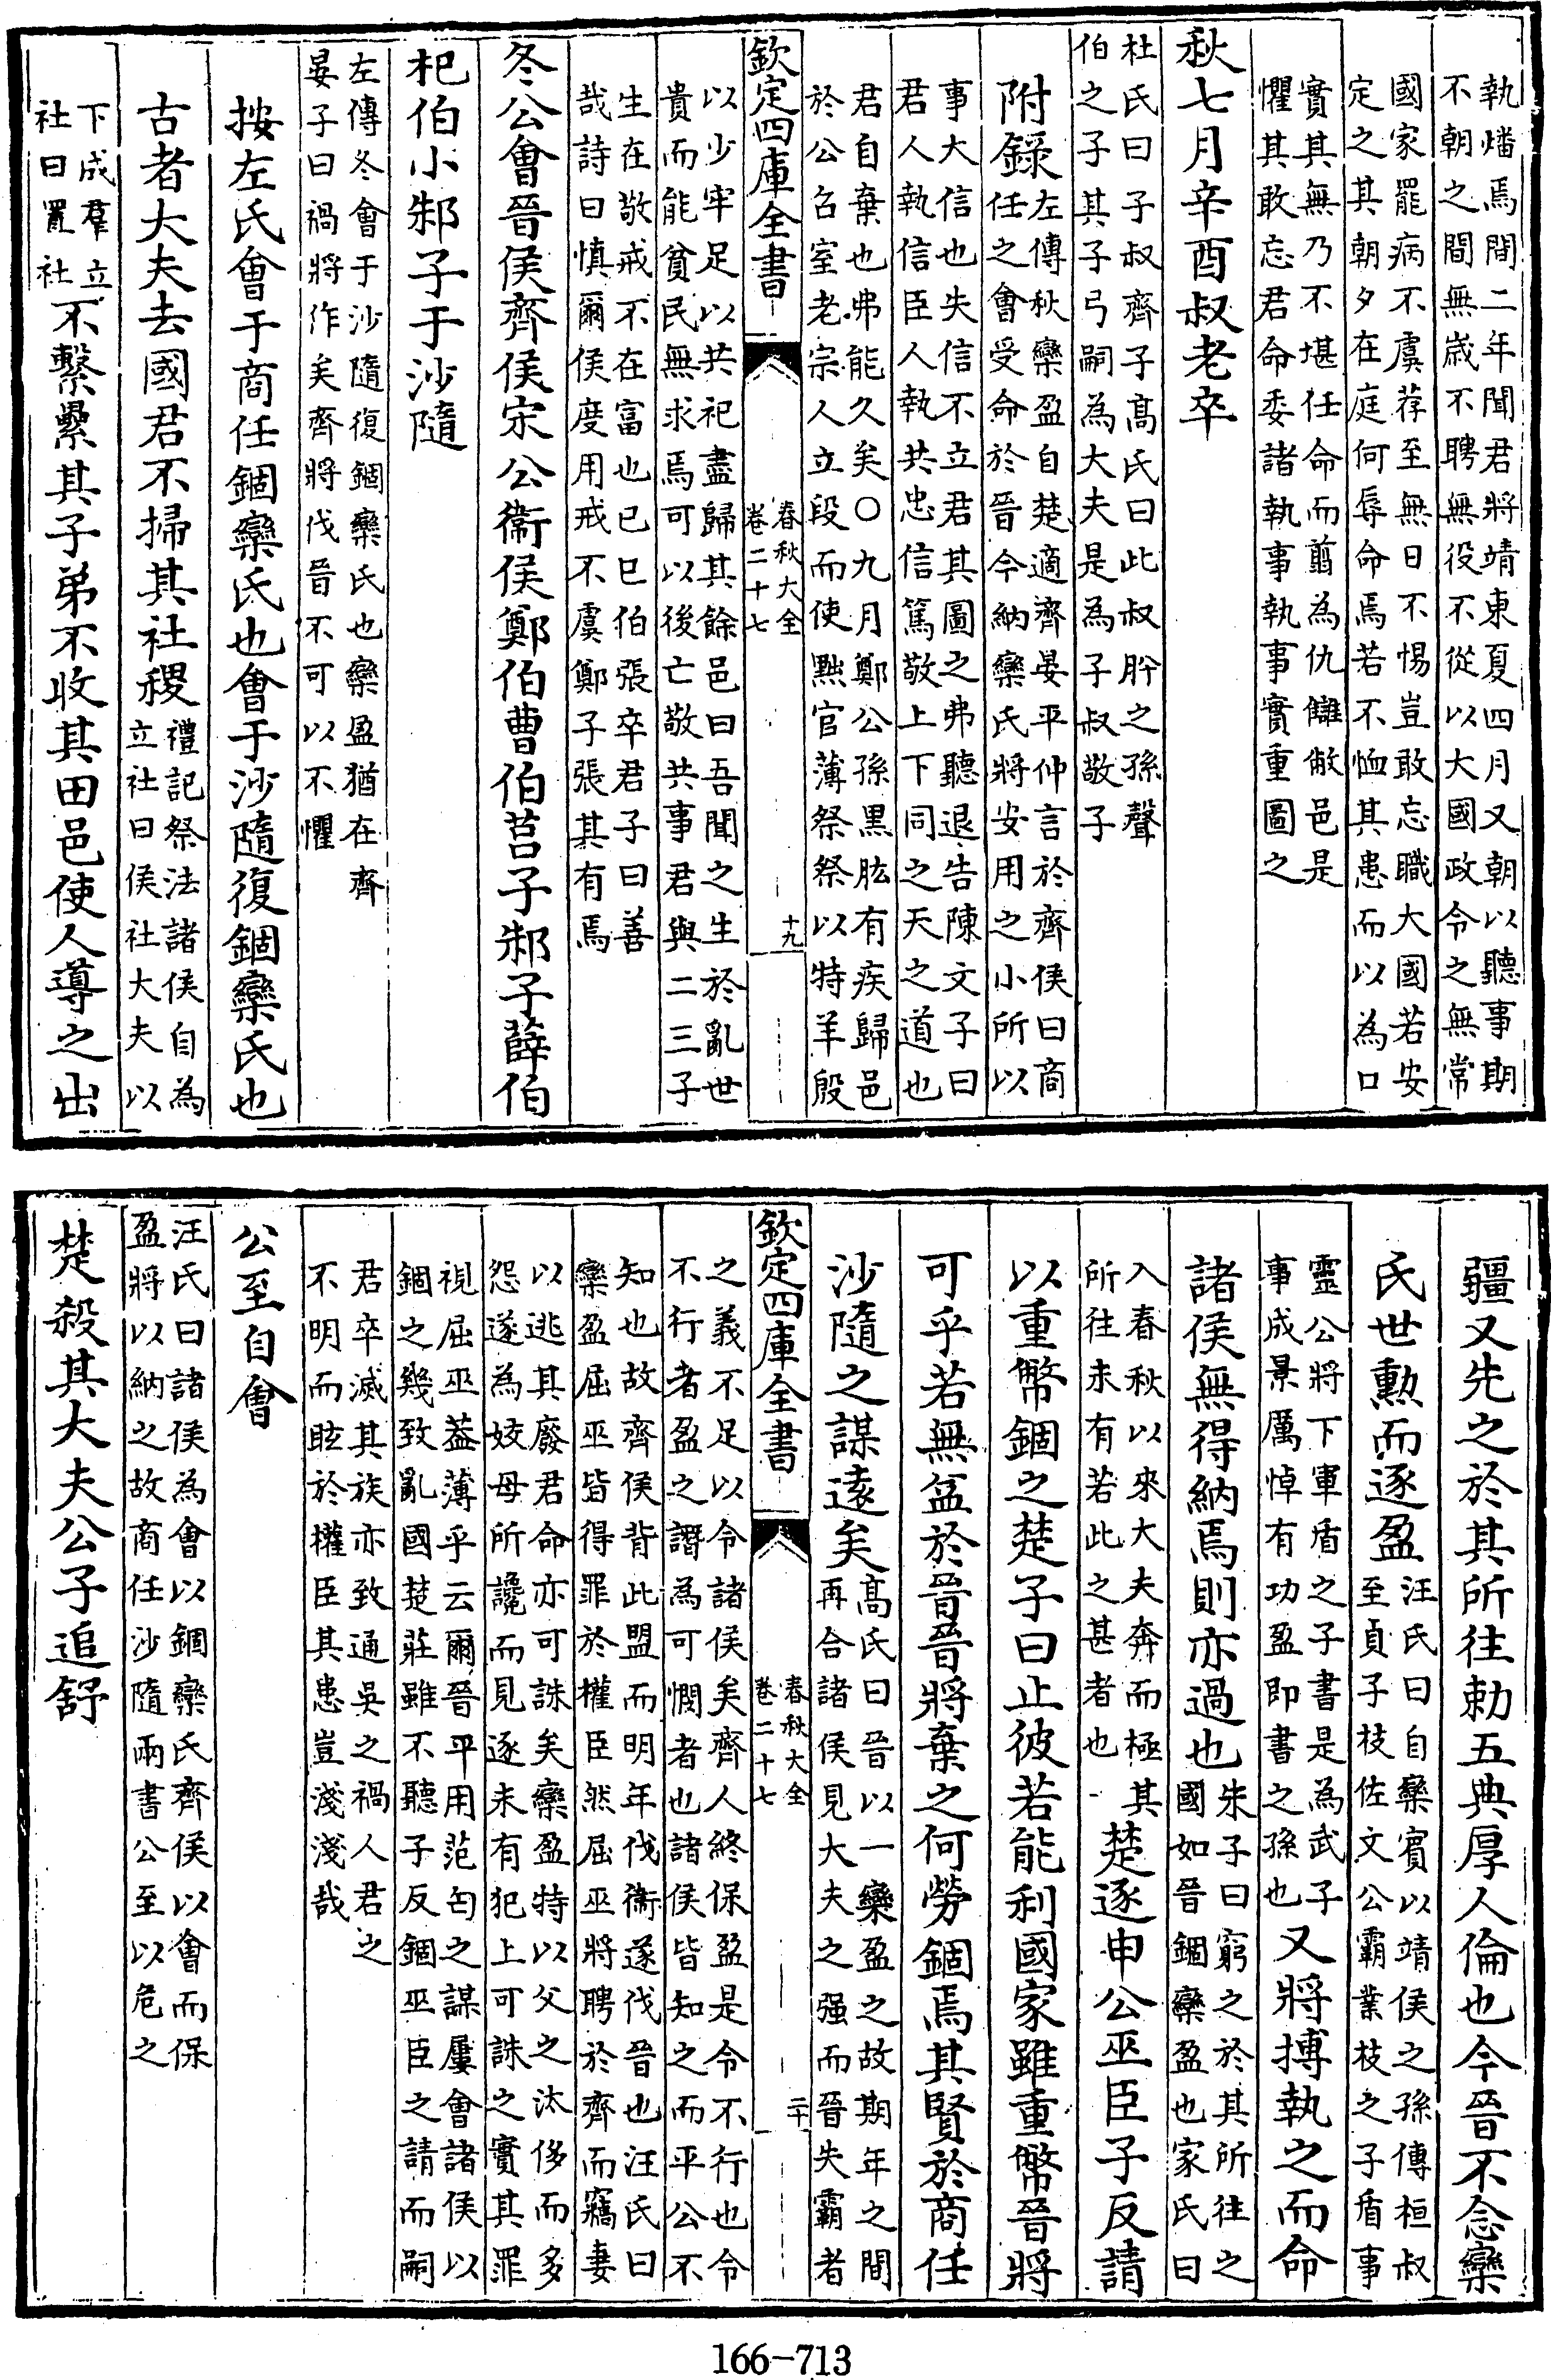 執燔焉間二年聞君將靖東夏四月又朝以聽事期
不朝之間無歲不聘無役不從以大國政令之無常
國家罷病不虞荐至無日不惕豈敢忘職大國若安
定之其朝夕在庭何辱命焉若不恤其患而以為口
實其無乃不堪任命而翦為仇讎敝邑是
懼其敢忘君命委諸執事執事實重圖之
秋七月辛酉叔老卒
杜氏曰子叔齊子髙氏曰此叔肸之孫聲
伯之子其子弓嗣為大夫是為子叔敬子
附録左傳秋欒盈自楚適齊晏平仲言於齊侯曰商
任之會受命於晉今納欒氏將安用之小所以
事大信也失信不立君其圖之弗聽退告陳文子曰
君人執信臣人執共忠信篤敬上下同之天之道也
君自棄也弗能久矣○九月鄭公孫黑肱有疾歸邑
於公召室老宗人立段而使黜官薄祭祭以特羊殷
欽定四庫全書
春秋大全
卷二十七
十九
以少牢足以共祀盡歸其餘邑曰吾聞之生於亂世
貴而能貧民無求焉可以後亡敬共事君與二三子
生在敬戒不在富也已巳伯張卒君子曰善
哉詩曰慎爾侯度用戒不虞鄭子張其有焉
冬公會晉侯齊侯宋公衞侯鄭伯曹伯莒子邾子薛伯
杞伯小邾子于沙隨
左傳冬會于沙隨復錮欒氏也欒盈猶在齊
晏子曰禍將作矣齊將伐晉不可以不懼
按左氏會于商任錮欒氏也會于沙隨復錮欒氏也
古者大夫去國君不掃其社稷禮記祭法諸侯自為
立社曰侯社大夫以
下成羣立
社曰置社不繫纍其子弟不收其田邑使人導之出
疆又先之於其所往勅五典厚人倫也今晉不念欒
氏世勲而逐盈汪氏曰自欒賓以靖侯之孫傅桓叔
至貞子枝佐文公霸業枝之子盾事
靈公將下軍盾之子書是為武子
事成景厲悼有功盈即書之孫也又將搏執之而命
諸侯無得納焉則亦過也朱子曰窮之於其所往之
國如晉錮欒盈也家氏曰
入春秋以來大夫奔而極其
所往未有若此之甚者也楚逐申公巫臣子反請
以重幣錮之楚子曰止彼若能利國家雖重幣晉將
可乎若無益於晉晉將棄之何勞錮焉其賢於商任
沙隨之謀遠矣髙氏曰晉以一欒盈之故期年之間
再合諸侯見大夫之强而晉失霸者
欽定四庫全書
春秋大全
卷二十七
二十
之義不足以令諸侯矣齊人終保盈是令不行也令
不行者盈之譖為可憫者也諸侯皆知之而平公不
知也故齊侯背此盟而明年伐衞遂伐晉也汪氏曰
欒盈屈巫皆得罪於權臣然屈巫將聘於齊而竊妻
以逃其廢君命亦可誅矣欒盈特以父之汰侈而多
怨遂為姣母所讒而見逐未有犯上可誅之實其罪
視屈巫葢薄乎云爾晉平用范匄之謀屢會諸侯以
錮之幾致亂國楚莊雖不聽子反錮巫臣之請而嗣
君卒滅其族亦致通吳之禍人君之
不明而眩於權臣其患豈淺淺哉
公至自會
汪氏曰諸侯為會以錮欒氏齊侯以會而保
盈將以納之故商任沙隨兩書公至以危之
楚殺其大夫公子追舒
166-713